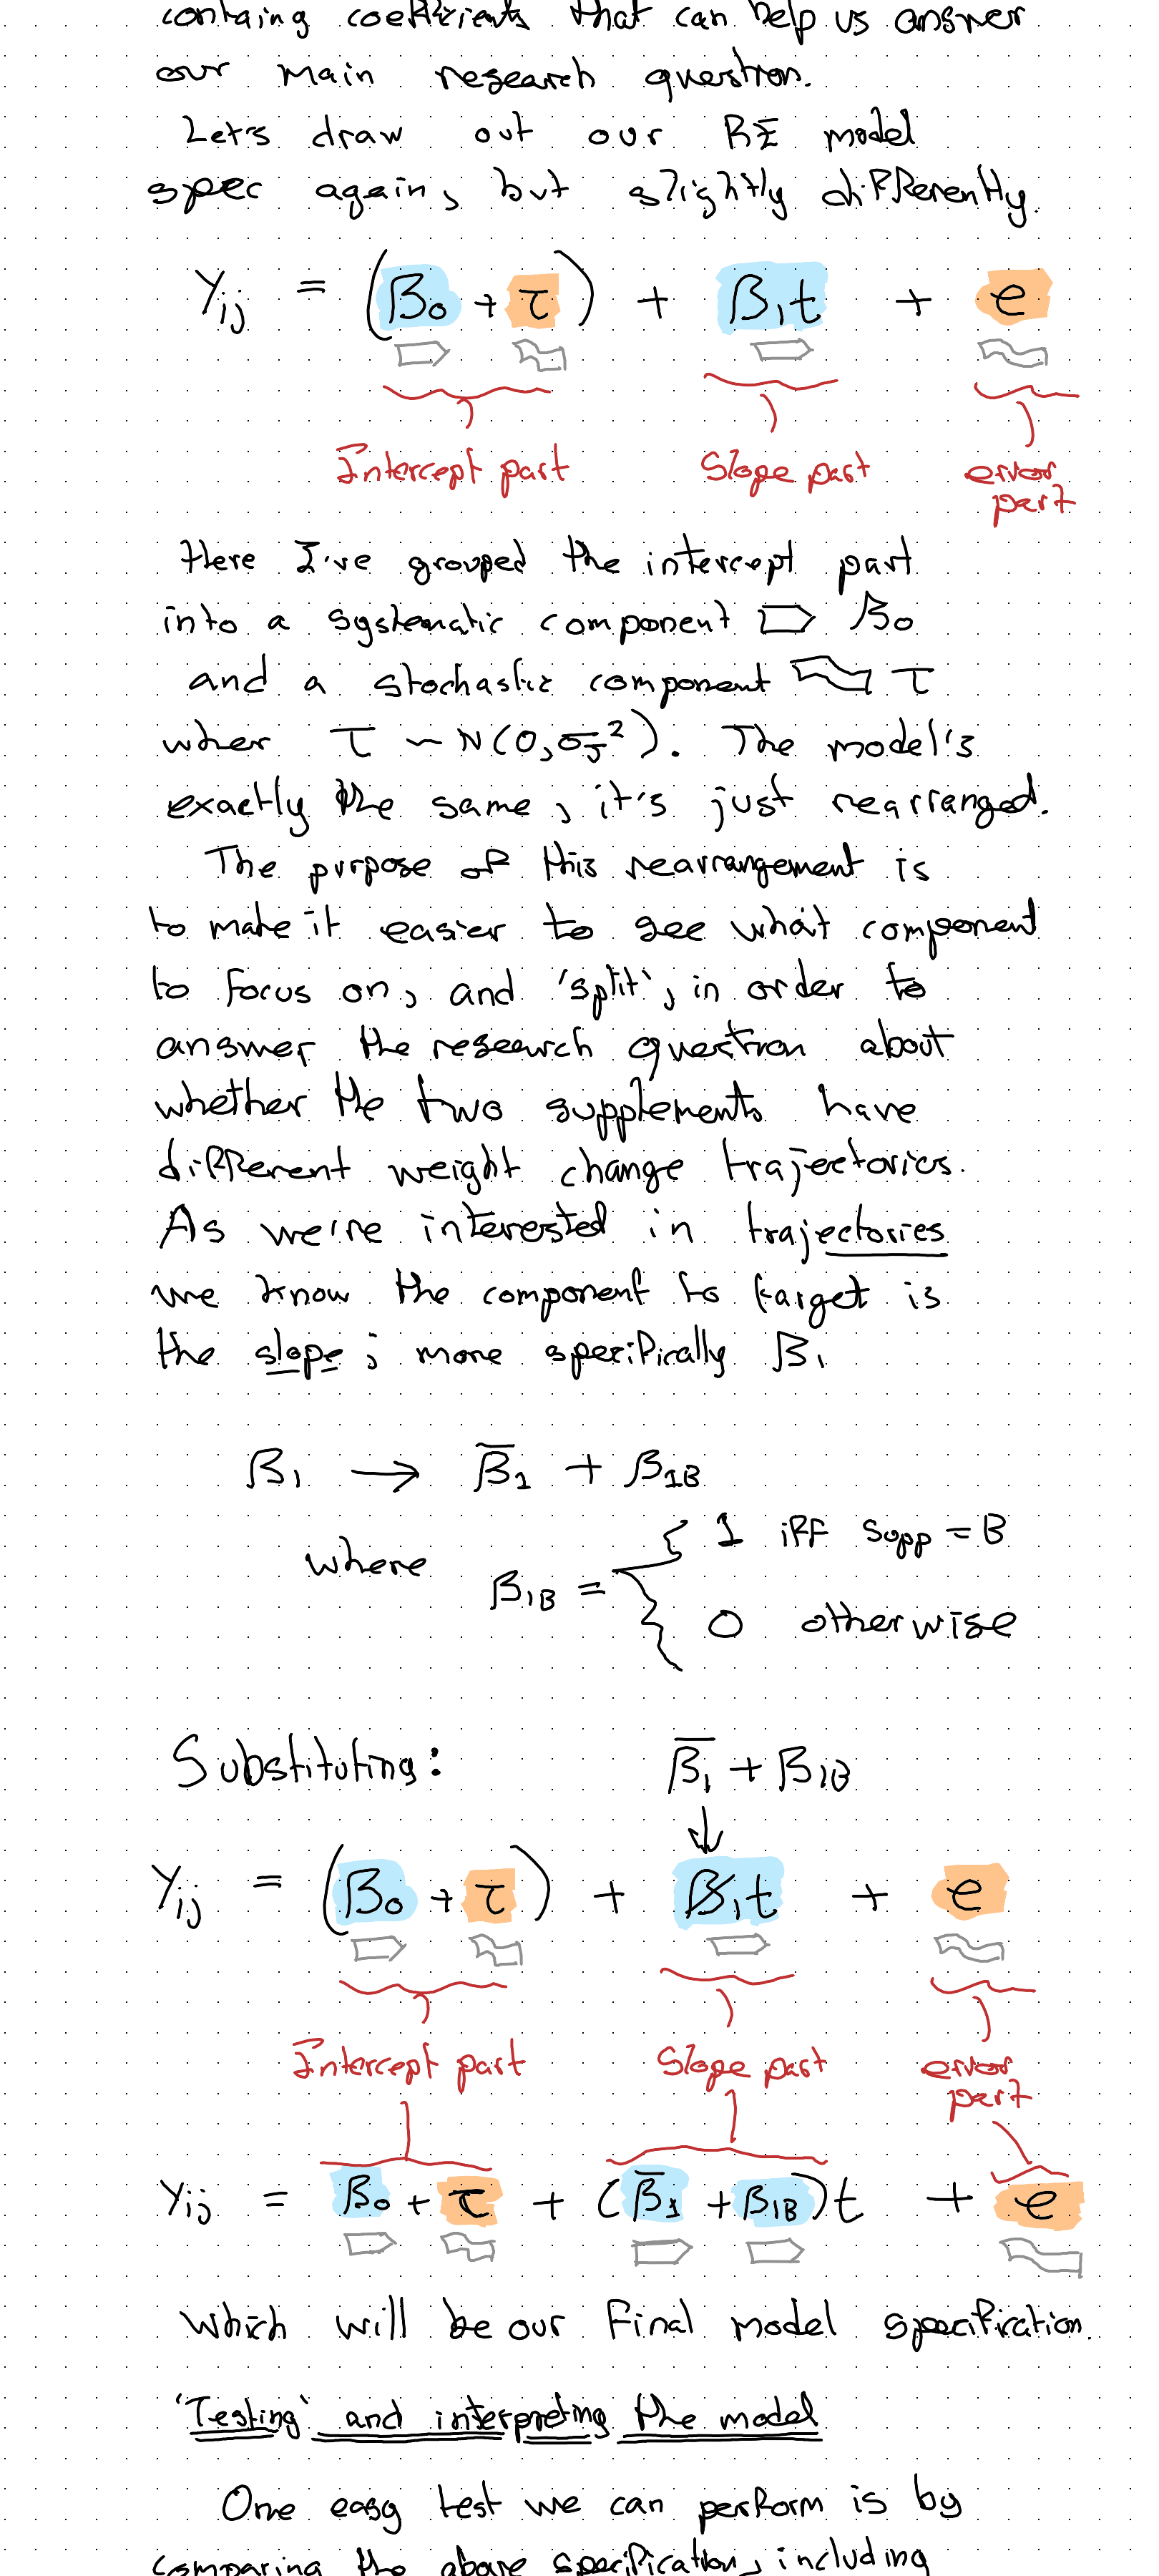 containg coefficients that can help us answer
our main research question.
Let's draw out our RE model
spec again, but slightly differently.
Yij = (β₀ + τ) + β₁t + e
Intercept part Slope part error part
Here I've grouped the intercept part
into a systematic component β₀
and a stochastic component τ
wher τ ~ N(0, σ_J²). The model's
exactly the same, it's just rearranged.
The purpose of this rearrangement is
to make it easier to see what component
to focus on, and 'split', in order to
answer the research question about
whether the two supplements have
different weight change trajectories.
As we're interested in trajectories
we know the component to target is
the slope; more specifically β₁
β₁ → β̄₁ + β₁B
where β₁B = { 1 iff Supp = B
0 otherwise
Substituting: β̄₁ + β₁B
↓
Yij = (β₀ + τ) + β₁t + e
Intercept part Slope part error part
Yij = β₀ + τ + (β̄₁ + β₁B)t + e
which will be our final model specification.
'Testing' and interpreting the model
One easy test we can perform is by
comparing the above specification, including